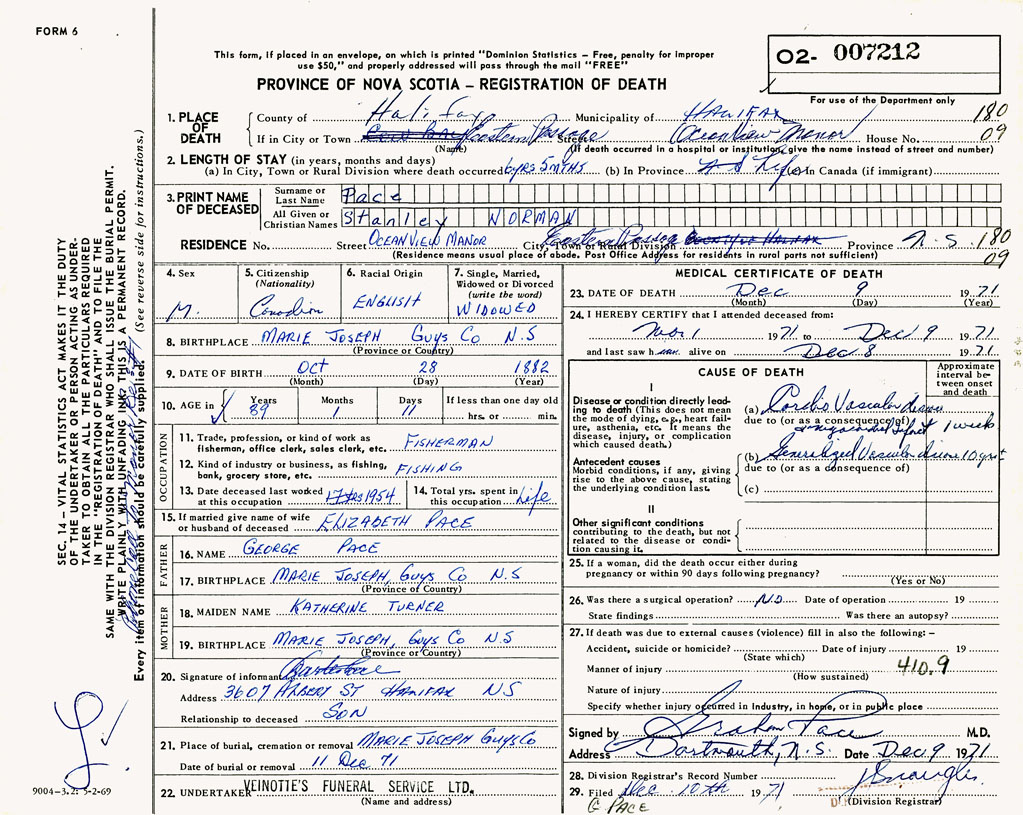 FORM 6
This form, if placed in an envelope, on which is printed "Dominion Statistics – Free, penalty for improper
use $50," and properly addressed will pass through the mail "FREE"
O2- 007212
PROVINCE OF NOVA SCOTIA – REGISTRATION OF DEATH
For use of the Department only
1. PLACE OF DEATH
County of Halifax Municipality of HALIFAX 180
If in City or Town Eastern Passage Street Oceanview Manor House No. 09
(Name) (If death occurred in a hospital or institution, give the name instead of street and number)
2. LENGTH OF STAY (in years, months and days)
(a) In City, Town or Rural Division where death occurred 6yrs 5mths (b) In Province Life (c) In Canada (if immigrant)
3. PRINT NAME OF DECEASED
Surname or Last Name Pace
All Given or Christian Names Stanley NORMAN
RESIDENCE No. Street OCEANVIEW MANOR City, Town or Rural Division Eastern Passage Province N.S. 180
(Residence means usual place of abode. Post Office Address for residents in rural parts not sufficient) 09
4. Sex M.
5. Citizenship (Nationality) Canadian
6. Racial Origin ENGLISH
7. Single, Married, Widowed or Divorced (write the word) WIDOWED
8. BIRTHPLACE MARIE JOSEPH GUYS CO N.S
(Province or Country)
9. DATE OF BIRTH OCT 28 1882
(Month) (Day) (Year)
10. AGE in Years 89 Months 1 Days 11 If less than one day old
hrs. or min.
OCCUPATION
11. Trade, profession, or kind of work as fisherman, office clerk, sales clerk, etc. FISHERMAN
12. Kind of industry or business, as fishing, bank, grocery store, etc. FISHING
13. Date deceased last worked at this occupation 1954
14. Total yrs. spent in this occupation Life
15. If married give name of wife or husband of deceased ELIZABETH PACE
FATHER
16. NAME GEORGE PACE
17. BIRTHPLACE MARIE JOSEPH, GUYS CO N.S
(Province of Country)
MOTHER
18. MAIDEN NAME KATHERINE TURNER
19. BIRTHPLACE MARIE JOSEPH, GUYS CO N.S
(Province or Country)
20. Signature of informant
Address 3607 ALBERT ST HALIFAX N S
Relationship to deceased SON
21. Place of burial, cremation or removal MARIE JOSEPH GUYS CO
Date of burial or removal 11 Dec 71
22. UNDERTAKER VEINOTTE'S FUNERAL SERVICE LTD.
(Name and address)
MEDICAL CERTIFICATE OF DEATH
23. DATE OF DEATH Dec 9 1971
(Month) (Day) (Year)
24. I HEREBY CERTIFY that I attended deceased from:
Nov 1 1971 to Dec 9 1971
and last saw h alive on Dec 8 1971
CAUSE OF DEATH
Approximate interval between onset and death
I
Disease or condition directly leading to death (This does not mean the mode of dying, e.g., heart failure, asthenia, etc. It means the disease, injury, or complication which caused death.)
(a) Cardio Vascular disease
due to (or as a consequence of) 1 week
Antecedent causes
Morbid conditions, if any, giving rise to the above cause, stating the underlying condition last.
(b) Generalized Vascular disease 10 yrs+
due to (or as a consequence of)
(c)
II
Other significant conditions
contributing to the death, but not related to the disease or condition causing it.
25. If a woman, did the death occur either during
pregnancy or within 90 days following pregnancy?
(Yes or No)
26. Was there a surgical operation? NO Date of operation 19
State findings Was there an autopsy?
27. If death was due to external causes (violence) fill in also the following: –
Accident, suicide or homicide? Date of injury 19
(State which)
Manner of injury 410.9
(How sustained)
Nature of injury
Specify whether injury occurred in industry, in home, or in public place
Signed by Graham Pace M.D.
Address Dartmouth, N.S. Date Dec 9 1971
28. Division Registrar's Record Number
29. Filed Dec 10th 1971
(Division Registrar)
G PACE
SEC. 14 – VITAL STATISTICS ACT MAKES IT THE DUTY
OF THE UNDERTAKER OR PERSON ACTING AS UNDER-
TAKER TO OBTAIN ALL THE PARTICULARS REQUIRED
IN THE "REGISTRATION OF DEATH" AND TO FILE THE
SAME WITH THE DIVISION REGISTRAR WHO SHALL ISSUE THE BURIAL PERMIT.
WRITE PLAINLY WITH UNFADING INK. THIS IS A PERMANENT RECORD.
Every item of information should be carefully supplied. (See reverse side for instructions.)
9004-3.2: 5-2-69